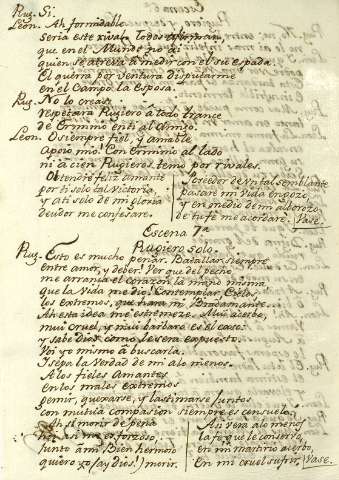 Rug. Si.
Leon. Ah formidable
seria este rival. Todos afirman,
que en el Mundo no ai
quien se atreva à medir con el su espada.
El querra por ventura disputarme
en el Campo la Esposa.
Rug. No lo creas:
respetara Rugiero à todo trance
de Erminio en ti al Amigo.
Leon. O siempre fiel, y amable
Apoio mio! Con Erminio al lado
ni à cien Rugieros temo por rivales.
Obtendré feliz amante
por ti solo tal Victoria,
y à ti solo de mi gloria
deudor me confesaré.
Poseedor de un tal semblante
pasaré mi vida en gozo,
y en medio de mi alborozo,
de tu fe me acordaré. Vase.
Escena 7ª
Rugiero solo.
Rug. Esto es mucho penar. Batallar siempre
entre amor, y deber! Ver que del pecho
me arranca el corazón la mano misma
que la Vida me dio! Contemplar, Cielo,
los extremos, que hara mi Bradamante...
Ah esta idea me estremeze. Mui acerbo,
mui cruel, y mui barbaro es el caso:
y sabe dios como le sera expuesto.
Voi yo mismo à buscarla.
Sepa la verdad de mi alo menos.
A los fieles Amantes
en los males extremos
gemir, quexarse, y lastimarse juntos
con mutua compasion siempre es consuelo.
Ah si morir de pena
hoi si me es forzoso,
junto à mi Bien hermoso
quiero yo (ay dios!) morir.
Ali vera alo menos
la fe que le conservo,
en mi martirio acerbo,
en mi cruel sufrir. Vase.